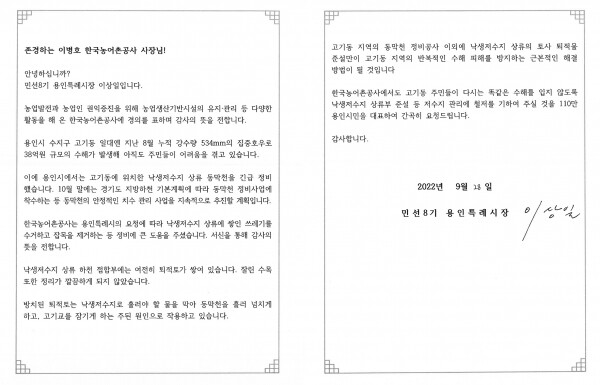 존경하는 이병호 한국농어촌공사 사장님!
안녕하십니까?
민선8기 용인특례시장 이상일입니다.
농업발전과 농업인 권익증진을 위해 농업생산기반시설의 유지·관리 등 다양한
활동을 해 온 한국농어촌공사에 경의를 표하며 감사의 뜻을 전합니다.
용인시 수지구 고기동 일대엔 지난 8월 누적 강수량 534mm의 집중호우로
38억원 규모의 수해가 발생해 아직도 주민들이 어려움을 겪고 있습니다.
이에 용인시에서는 고기동에 위치한 낙생저수지 상류 동막천을 긴급 정비
했습니다. 10월 말에는 경기도 지방하천 기본계획에 따라 동막천 정비사업에
착수하는 등 동막천의 안정적인 치수 관리 사업을 지속적으로 추진할 계획입니다.
한국농어촌공사는 용인특례시의 요청에 따라 낙생저수지에 쌓인 쓰레기를
수거하고 잡목을 제거하는 등 정비에 큰 도움을 주셨습니다. 서신을 통해 감사의
뜻을 전합니다.
낙생저수지 상류 하천 접합부에는 여전히 퇴적토가 쌓여 있습니다. 잘린 수목
또한 정리가 깔끔하게 되지 않았습니다.
방치된 퇴적토는 낙생저수지로 흘러야 할 물을 막아 동막천을 흘러 넘치게
하고, 고기교를 잠기게 하는 주된 원인으로 작용하고 있습니다.
고기동 지역의 동막천 정비공사 이외에 낙생저수지 상류의 토사 퇴적물
준설만이 고기동 지역의 반복적인 수해 피해를 방지하는 근본적인 해결
방법이 될 것입니다
한국농어촌공사에서도 고기동 주민들이 다시는 똑같은 수해를 입지 않도록
낙생저수지 상류부 준설 등 저수지 관리에 철저를 기하여 주실 것을 110만
용인시민을 대표하여 간곡히 요청드립니다.
감사합니다.
2022년 9월 28일
민선8기 용인특례시장 이상일